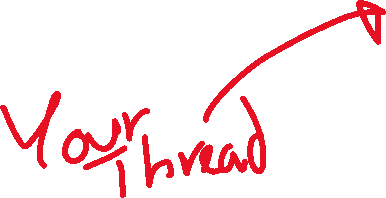 Your
Thread